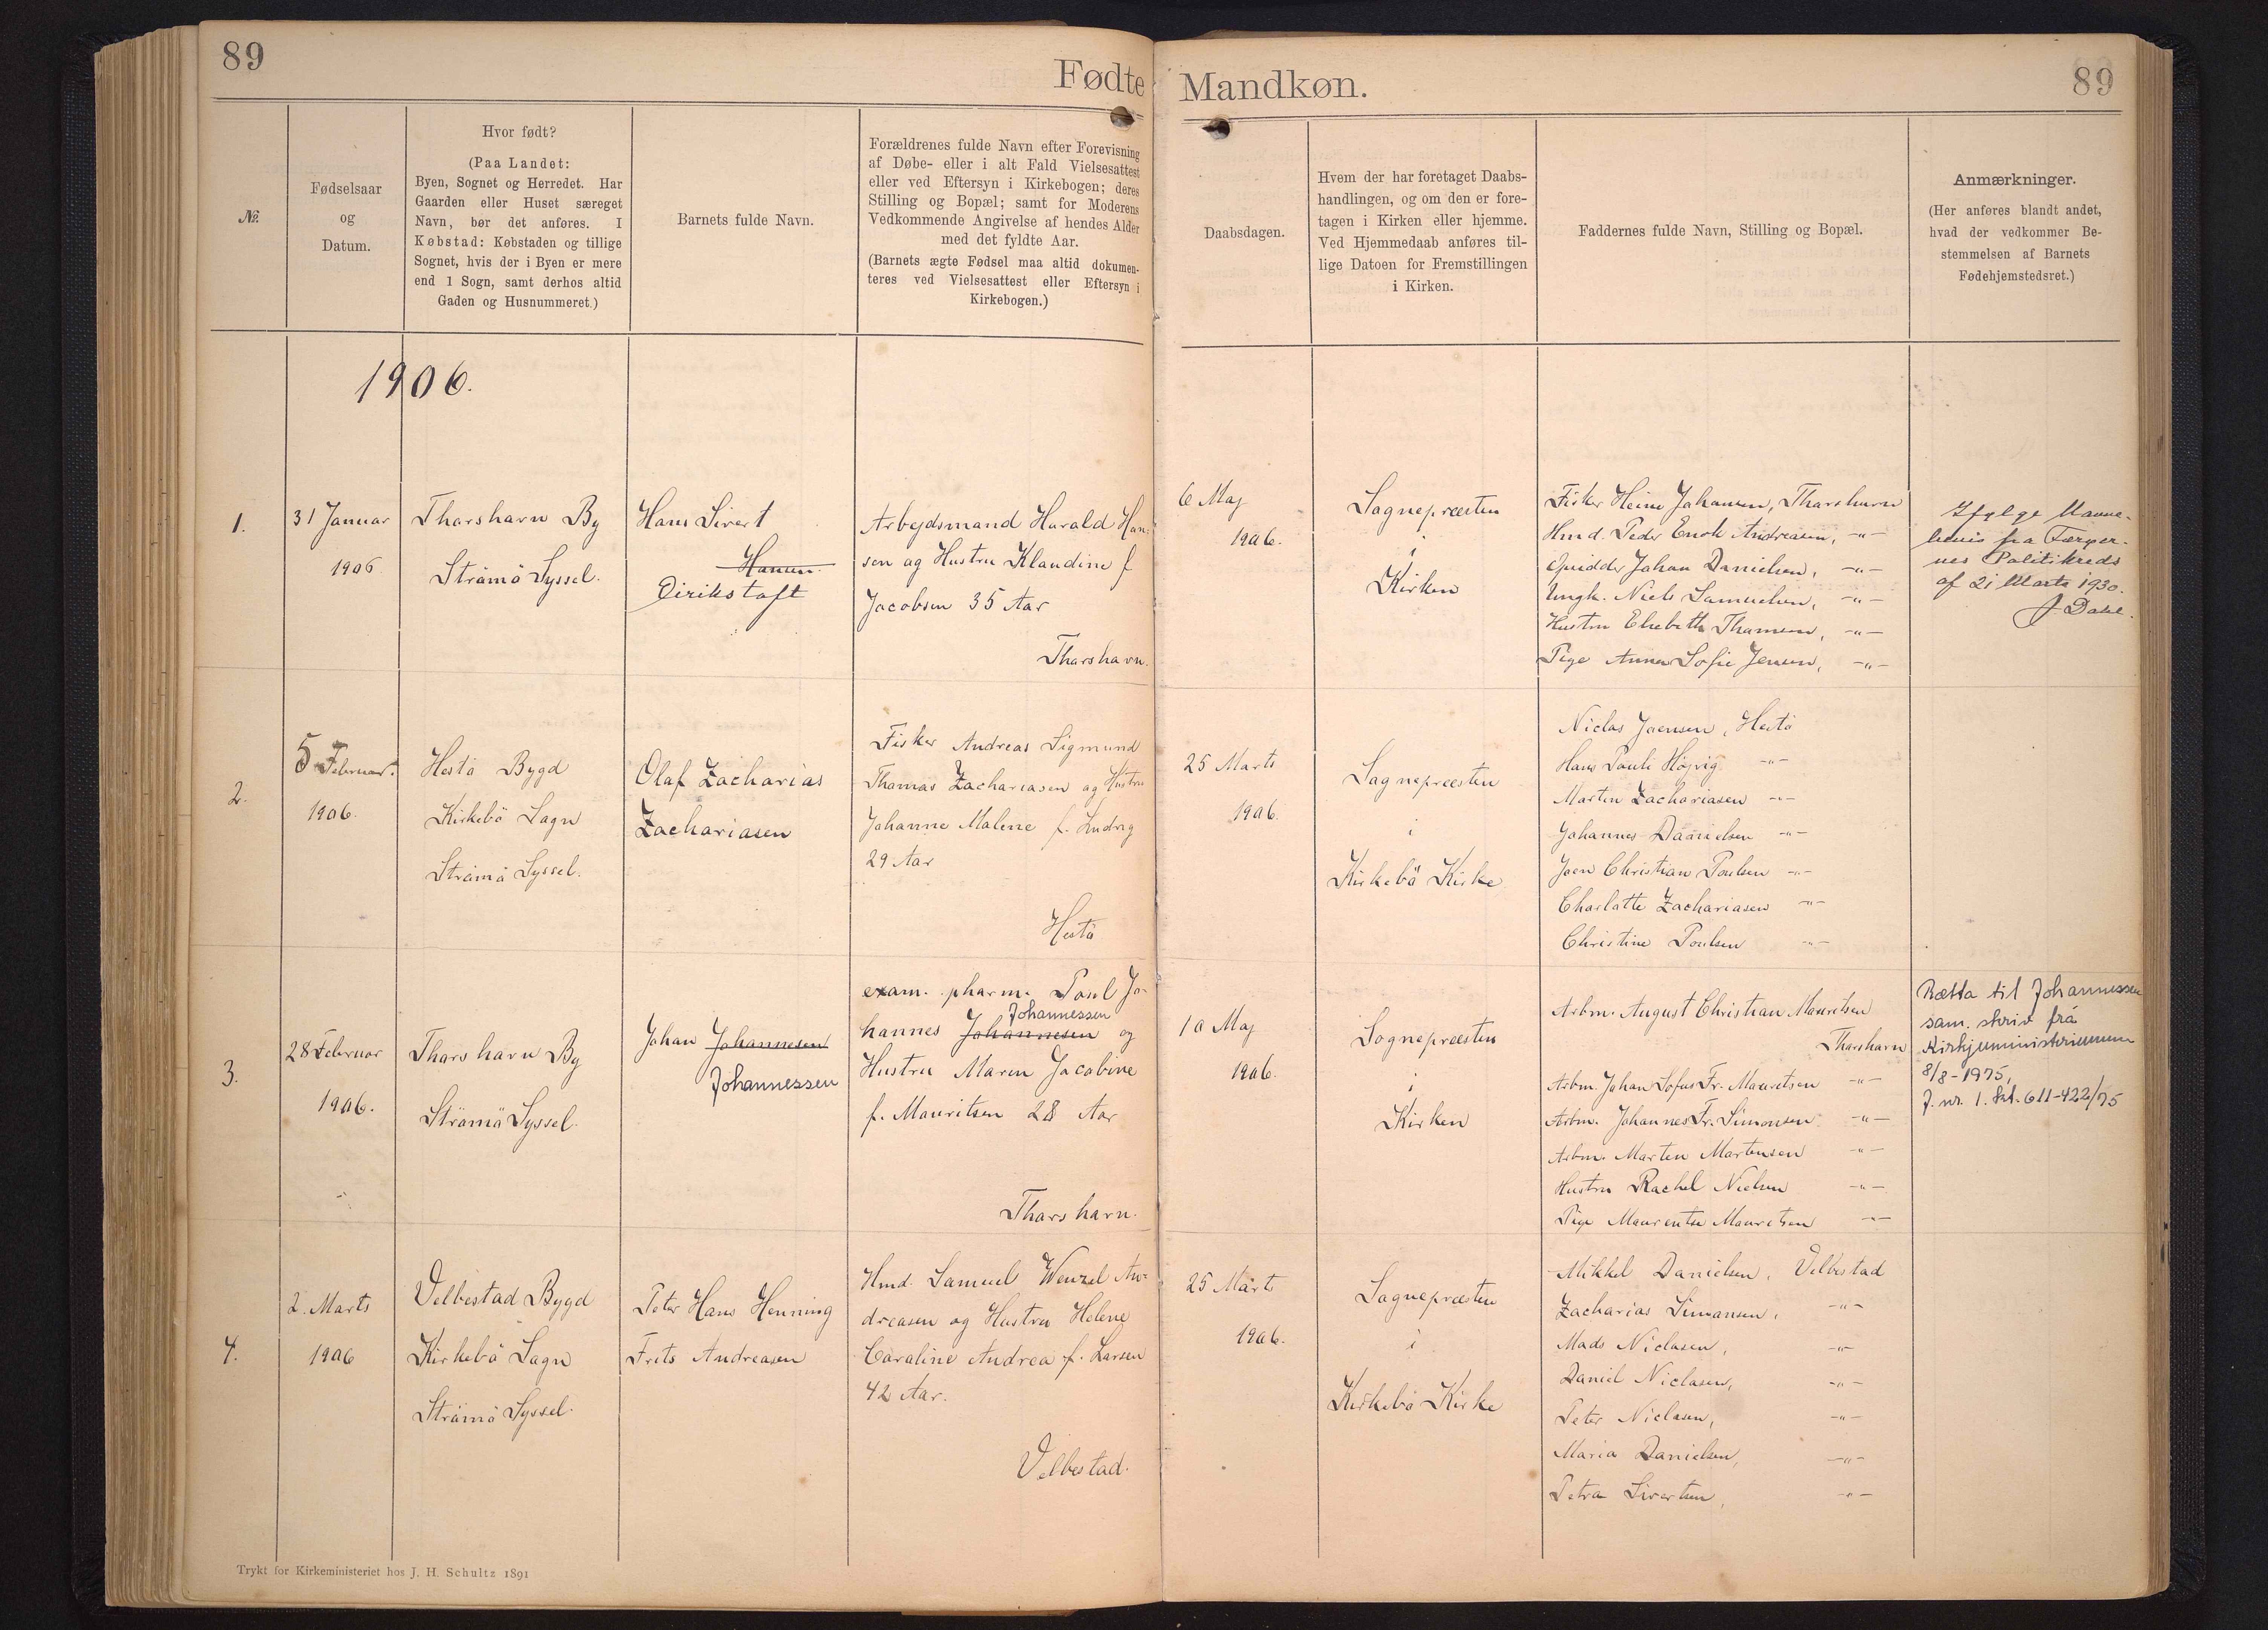 89
Fødte
Mandkøn.
89
№.
Fødselsaar
og
Datum.
Hvor født?
(Paa Landet:
Byen, Sognet og Herredet. Har
Gaarden eller Huset særeget
Navn, bør det anføres. I
Købstad: Købstaden og tillige
Sognet, hvis der i Byen er mere
end 1 Sogn, samt derhos altid
Gaden og Husnummeret.)
Barnets fulde Navn.
Forældrenes fulde Navn efter Forevisning
af Døbe- eller i alt Fald Vielsesattest
eller ved Eftersyn i Kirkebogen; deres
Stilling og Bopæl; samt for Moderens
Vedkommende Angivelse af hendes Alder
med det fyldte Aar.
(Barnets ægte Fødsel maa altid dokumen-
teres ved Vielsesattest eller Eftersyn i
Kirkebogen.)
Daabsdagen.
Hvem der har foretaget Daabs-
handlingen, og om den er fore-
tagen i Kirken eller hjemme.
Ved Hjemmedaab anføres til-
lige Datoen for Fremstillingen
i Kirken.
Faddernes fulde Navn, Stilling og Bopæl.
Anmærkninger.
(Her anføres blandt andet,
hvad der vedkommer Be-
stemmelsen af Barnets
Fødehjemstedsret.)
1906.
1.
31 Januar
1906
Thorshavn By
Strömö Syssel.
Hans Sivert
Hansen.
Eirikstoft
Arbejdsmand Harald Han-
sen og Hustru Klaudine f
Jacobsen 35 Aar
Thorshavn.
6 Maj
1906.
Sognepræsten
i
Kirken
Fisker Heine Johansen, Thorshavn
Hmd. Peder Enok Andreasen, -"-
Johan Danielsen, -"-
Ungk. Niels Samuelsen, -"-
Hustru Elsebeth Thomsen, -"-
Pige Anna Sofie Jensen, -"-
Ifølge Navne-
bevis fra Færøer-
nes Politikreds
af 21 Marts 1930.
J. Dahl.
2.
5 Februar.
1906.
Hestö Bygd
Kirkebö Sogn
Strömö Syssel.
Olaf Zacharias
Zachariasen
Fisker Andreas Sigmund
Thomas Zachariasen og Hustru
Johanne Malene f. Ludvig
29 Aar
Hestö
25 Marts
1906.
Sognepræsten
i
Kirkebö Kirke
Niclas Joensen, Hestö
Hans Pauli Höjvig -"-
Martin Zachariasen -"-
Johannes Danielsen -"-
Joen Christian Poulsen -"-
Charlotte Zachariasen -"-
Christine Poulsen -"-
3.
28 Februar
1906.
Thorshavn By
Strömö Syssel.
Johan Johannesen
Johannessen
exam. pharm. Poul Jo-
Johannessen
hannes Johannesen og
Hustru Maren Jacobine
f. Mauritsen 28 Aar
Thorshavn.
10 Maj
1906.
Sognepræsten
i
Kirken
Arbm. August Christian Mauritsen
Thorshavn
Arbm. Johan Sofus Fr. Mauritsen -"-
Arbm. Johannes Fr. Simonsen -"-
Arbm. Morten Mortensen -"-
Hustru Rachel Nielsen -"-
Pige Maurentse Mauritsen -"-
Rætta til Johannessen
sam. skriv frá
Kirkjuministeriinum
8/8-1975,
J. nr. 1. kt. 611-422/75
4.
2. Marts
1906
Velbestad Bygd
Kirkebö Sogn
Strömö Syssel.
Peter Hans Henning
Frits Andreasen
Hmd. Samuel Wenzel An-
dreasen og Hustru Helene
Caroline Andrea f. Larsen
42 Aar.
Velbestad.
25 Marts
1906.
Sognepræsten
i
Kirkebö Kirke
Mikkel Danielsen, Velbestad
Zacharias Simonsen, -"-
Mads Niclasen, -"-
Daniel Niclasen, -"-
Peter Niclasen, -"-
Maria Danielsen, -"-
Petra Sivertsen, -"-
Trykt for Kirkeministeriet hos J. H. Schultz 1891